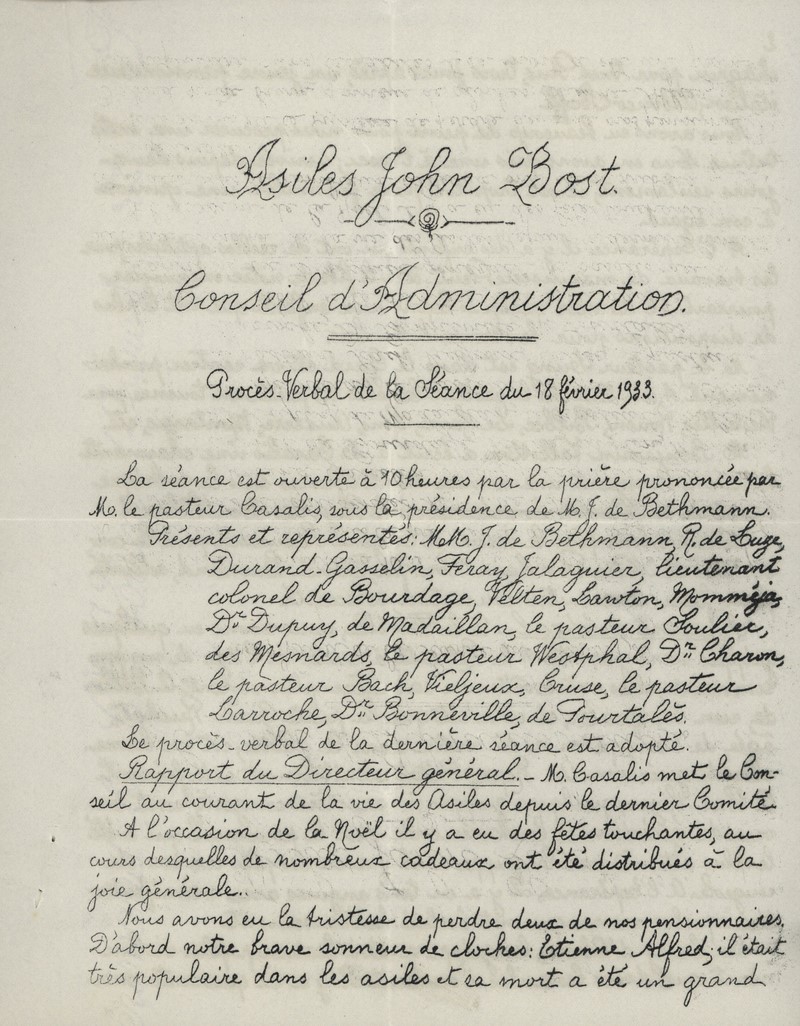 Asiles John Bost.
Conseil d'Administration.
Procès-Verbal de la Séance du 18 février 1933.
La séance est ouverte à 10 heures par la prière prononcée par
M. le pasteur Casalis, sous la présidence de M. J. de Bethmann.
Présents et représentés: M.M. J. de Bethmann, R. de Luze,
Durand-Gasselin, Feray, Jalaguier, lieutenant
colonel de Bourdage, Velten, Lawton, Momméja,
Dr. Dupuy, de Madaillan, le pasteur Soulier,
des Mesnards, le pasteur Westphal, Dr. Charon,
le pasteur Bach, Vieljeux, Cruse, le pasteur
Larroche, Dr. Bonneville, de Pourtalès.
Le procès-verbal de la dernière séance est adopté.
Rapport du Directeur général. - M. Casalis met le Con-
seil au courant de la vie des Asiles depuis le dernier Comité.
A l'occasion de la Noël il y a eu des fêtes touchantes, au
cours desquelles de nombreux cadeaux ont été distribués à la
joie générale..
Nous avons eu la tristesse de perdre deux de nos pensionnaires.
D'abord notre brave sonneur de cloches: Etienne Alfred; il était
très populaire dans les asiles et sa mort a été un grand